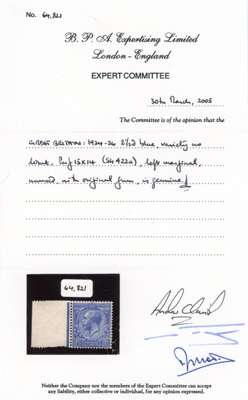 No. 64,821
B. P. A. Expertising Limited
London - England
EXPERT COMMITTEE
30th March, 2005
The Committee is of the opinion that the
GREAT BRITAIN: 1924-26 2½d blue, variety no
wmk. Perf 15X14 (SG 422a), left marginal,
unused, with original gum, is genuine.
64,821
Neither the Company nor the members of the Expert Committee can accept
any liability, either collective or individual, for any opinion expressed.